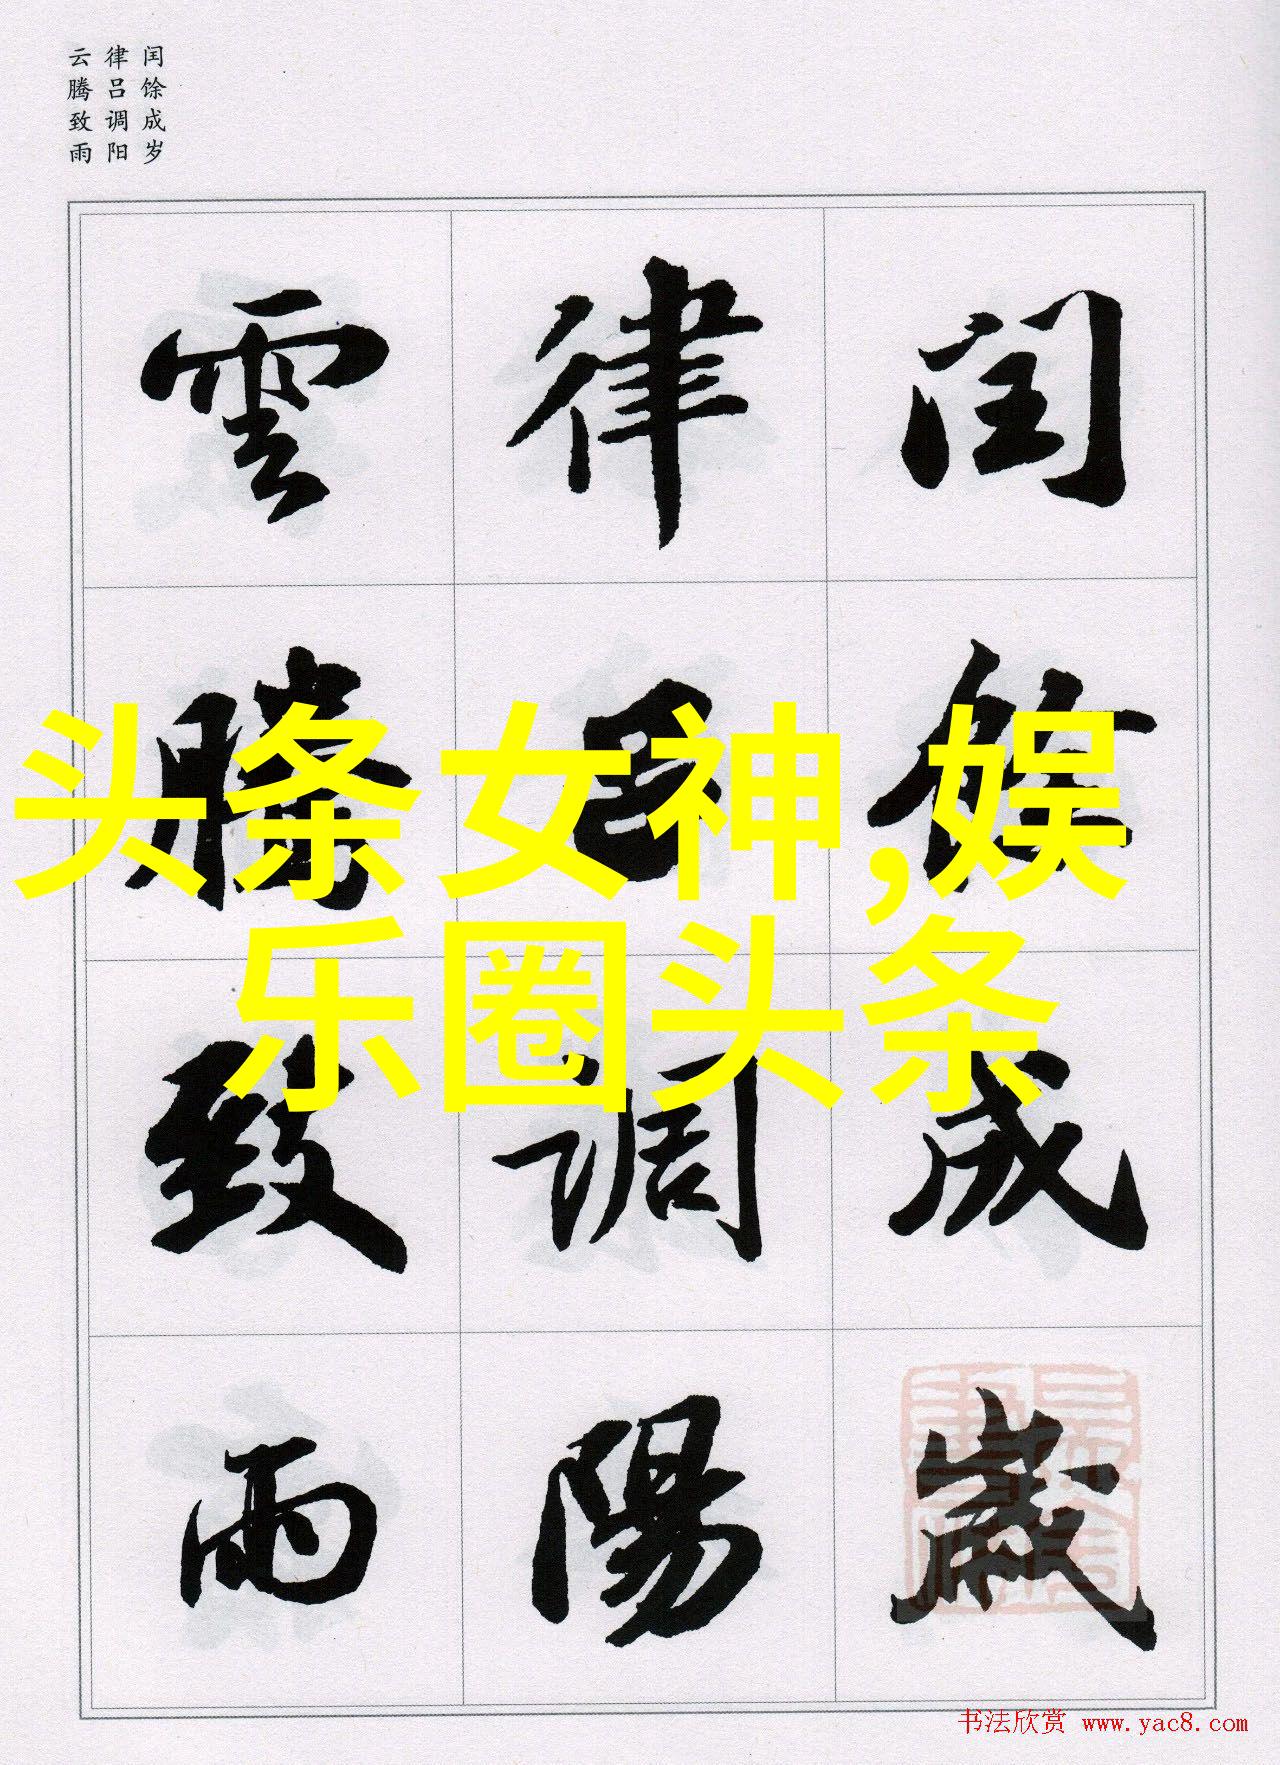 闰馀成岁
律吕调阳
云腾致雨
閏餘成歲
律吕調陽
雲騰致雨
头条女神,娱
乐圈头条
书法欣赏 www.yac8.com